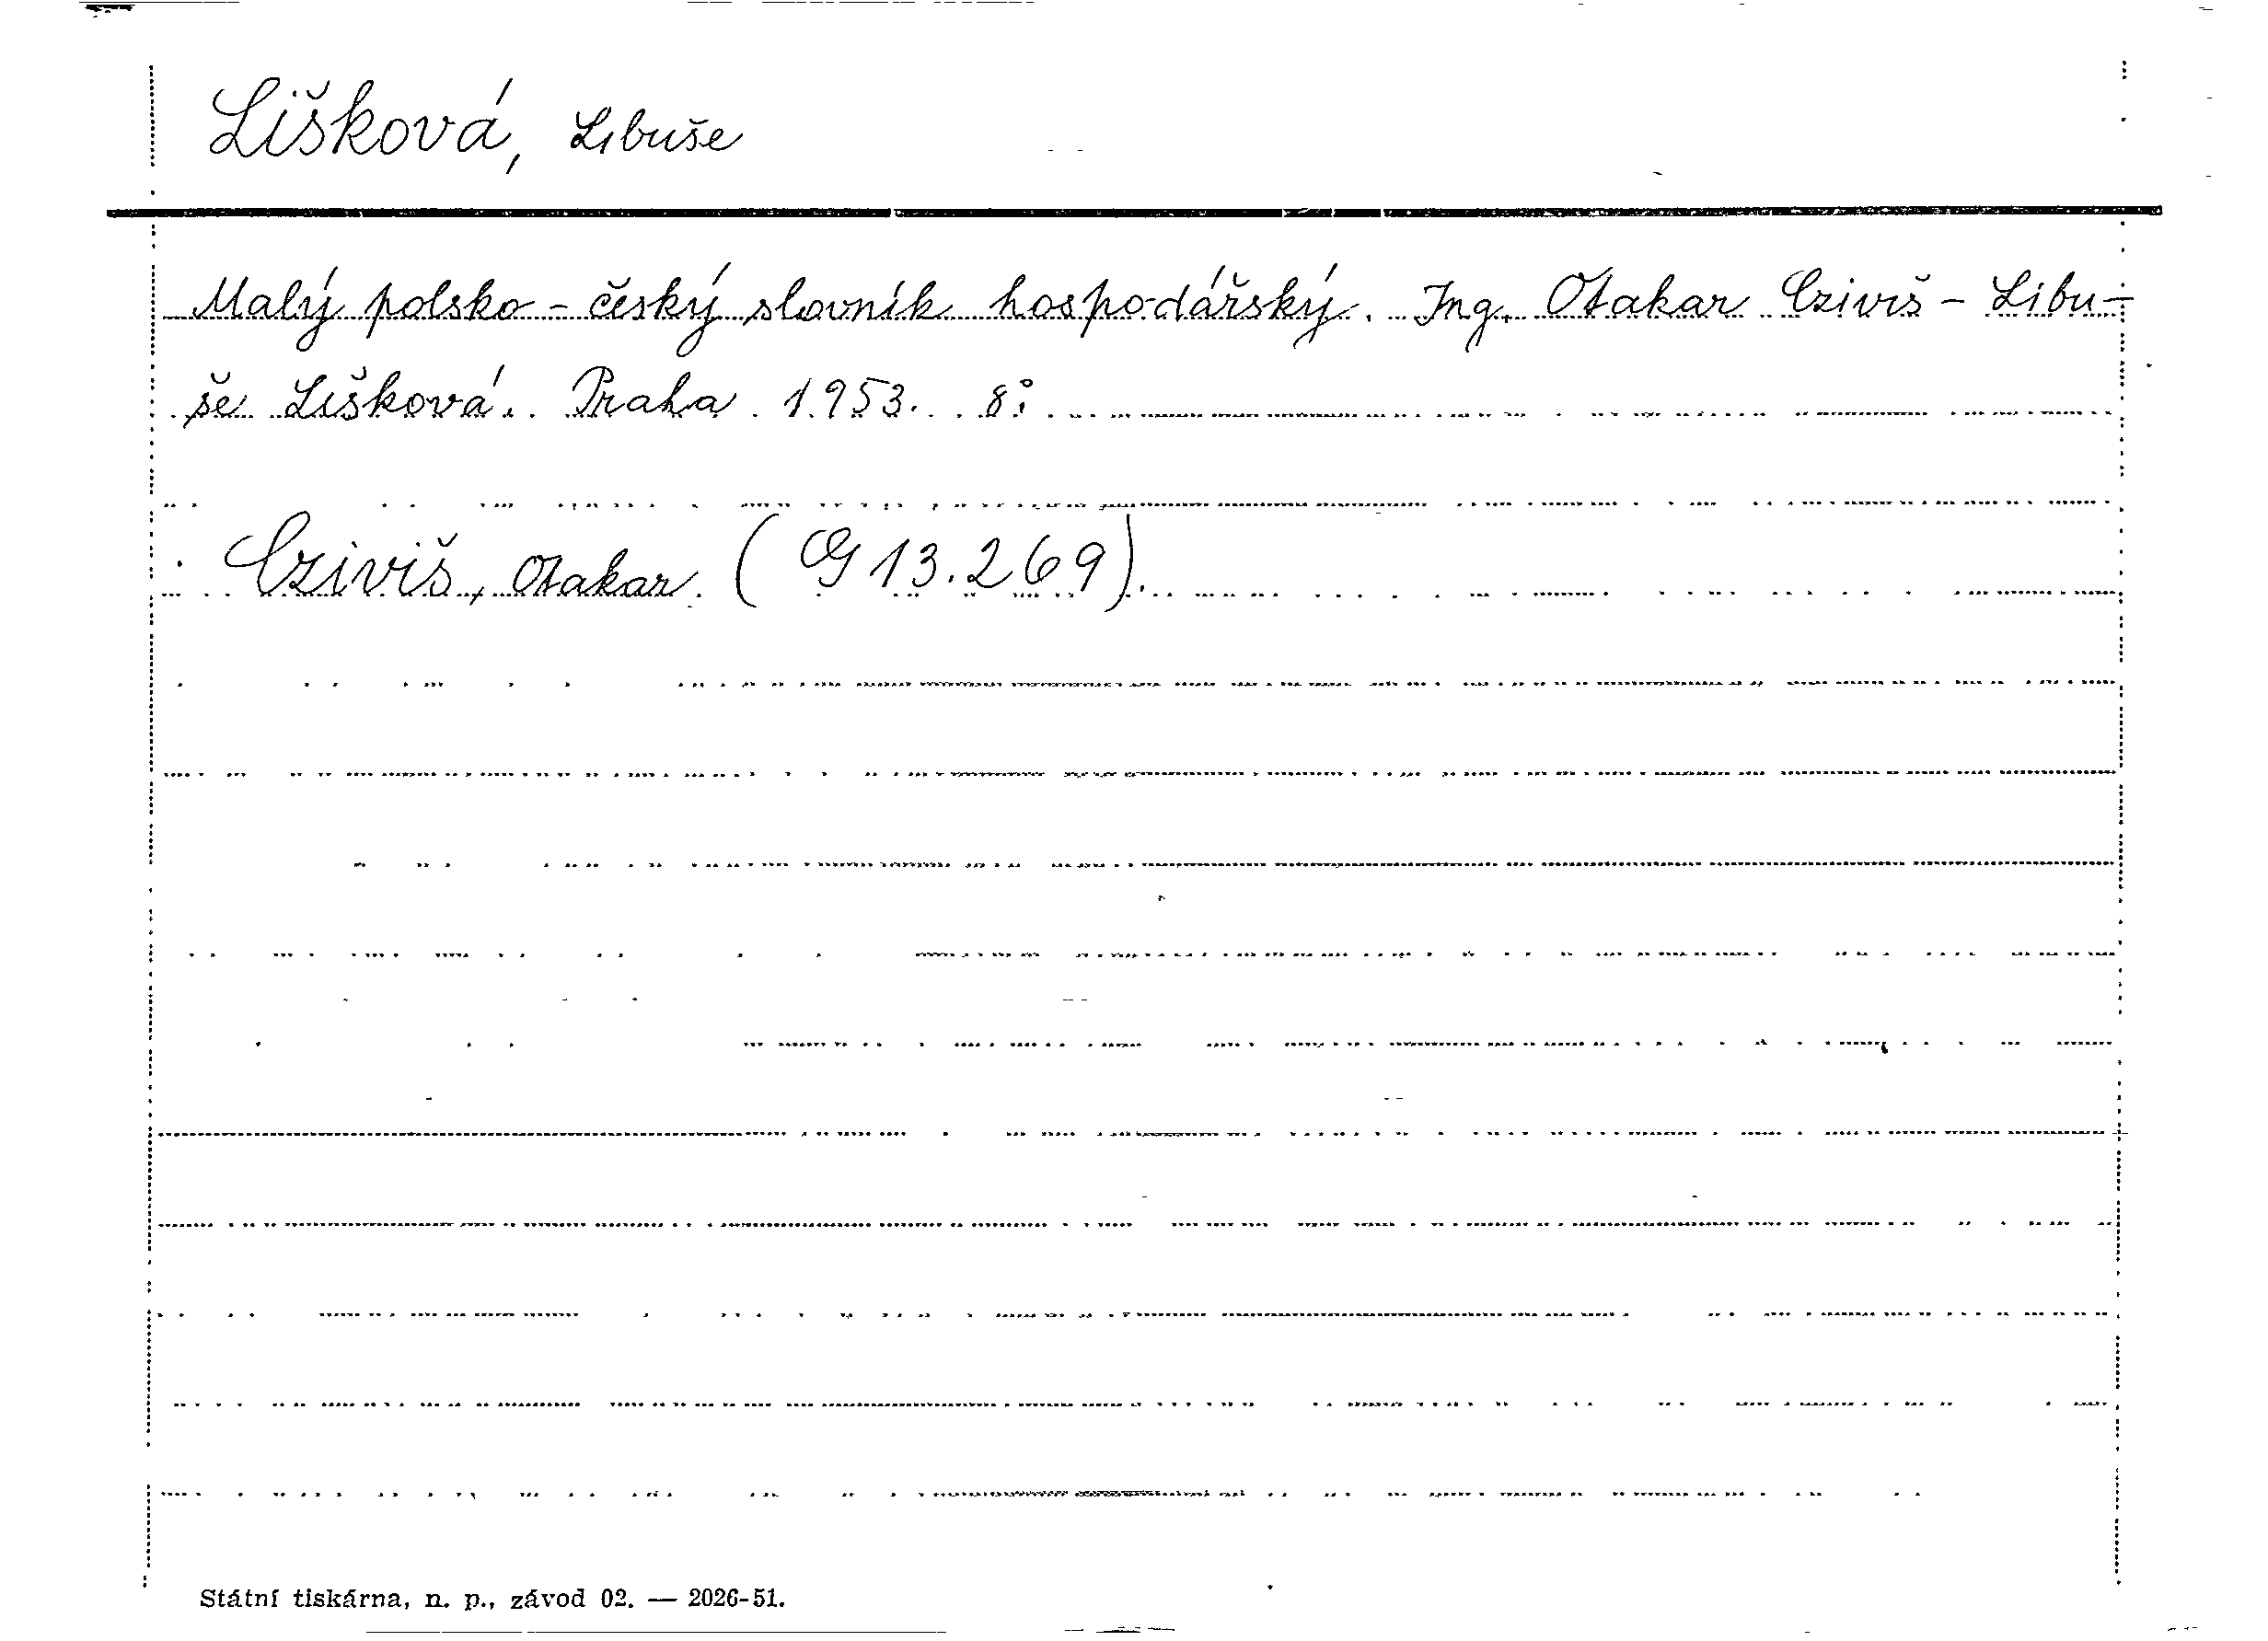 Lišková, Libuše
Malý polsko-český slovník hospodářský. Ing. Otakar Cziviš - Libu-
še Lišková. Praha 1953. 8°.
Cziviš, Otakar (G 13.269).
Státní tiskárna, n. p., závod 02. — 2026-51.